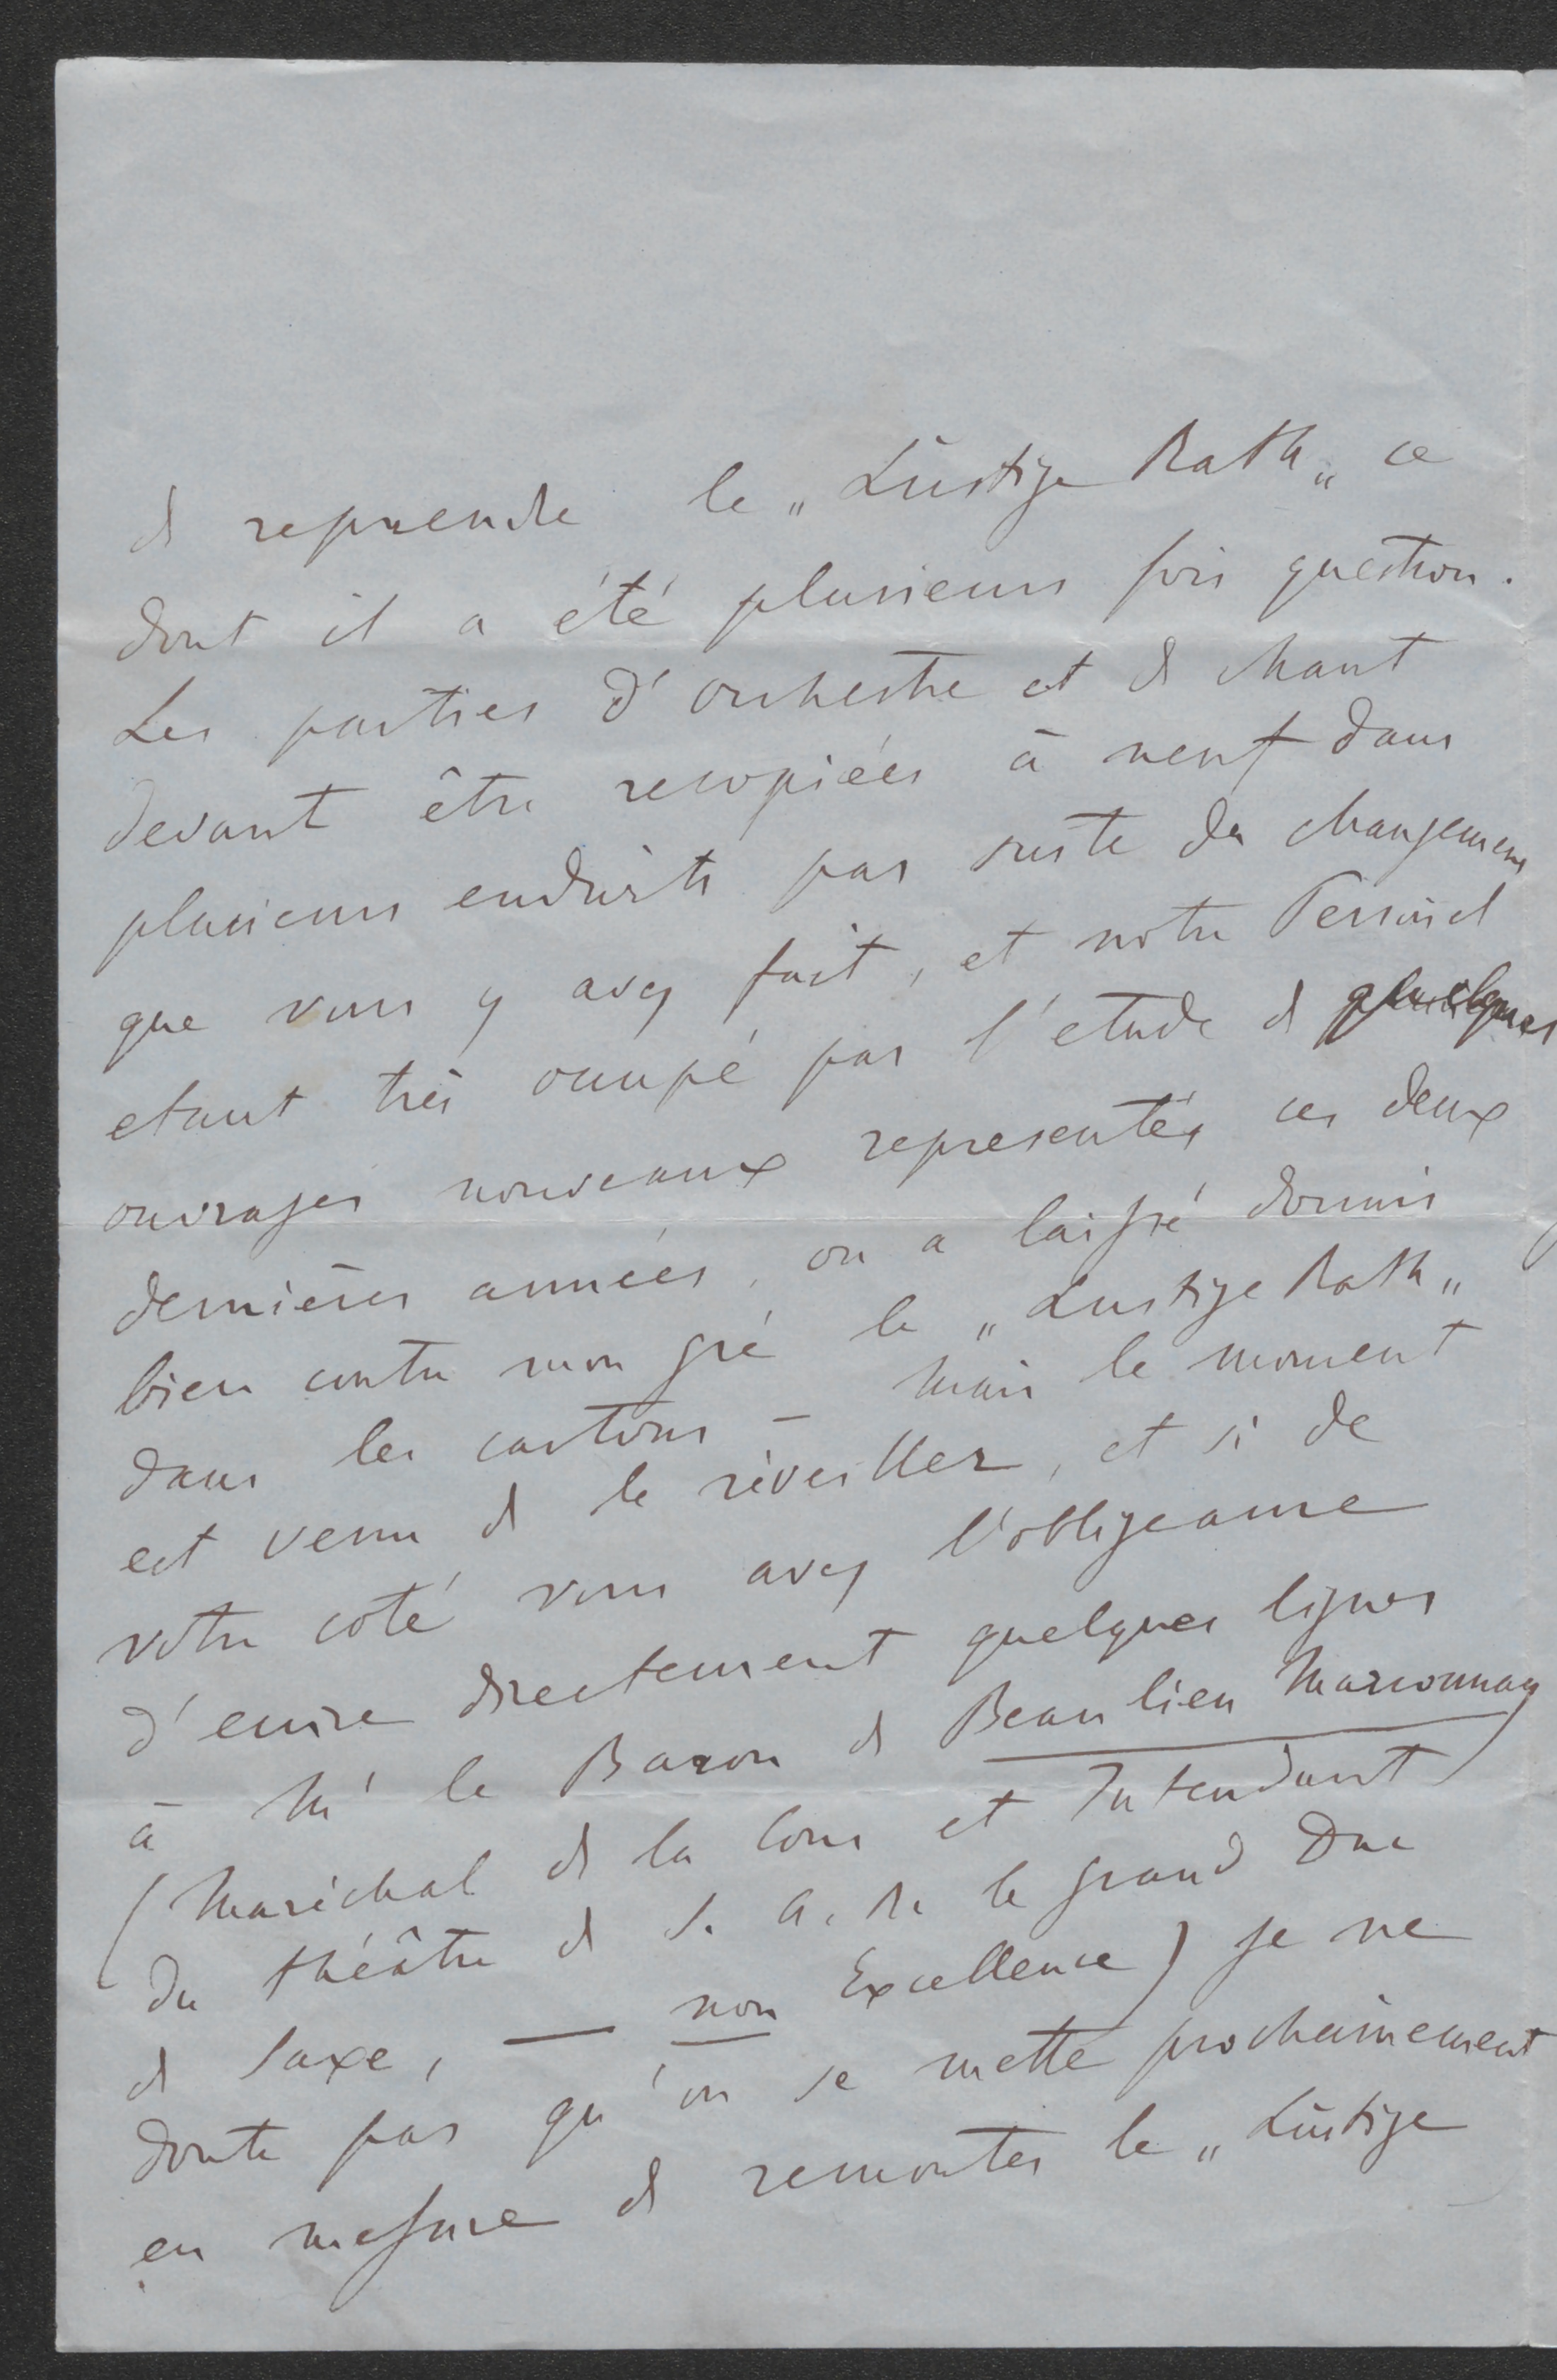 de reprendre le „Lustige Rath„ ce
dont il a été plusieurs fois question.
Les parties d'orchestre et de chant
devant être recopiées à neuf dans
plusieurs endroits par suite des changemens
que vous y avez fait, et notre Personel
etant très occupé par l'etude de quelques
ouvrages nouveaux representés ces deux
dernières années, on a laissé dormir
bien contre mon gré le „Lustige Rath„
dans les cartons – Mais le moment
est venu de le réveiller, et si de
votre coté vous avez l'obligeance
d'ecrire directement quelques lignes
à Mr le Baron de Beaulieu Marconnay
(Maréchal de la Cour et Intendant
du théâtre de S. A. R. le grand Duc
de Saxe, — non Excellence) je ne
doute pas qu'on se mette prochainement
en mesure de remonter le „Lustige